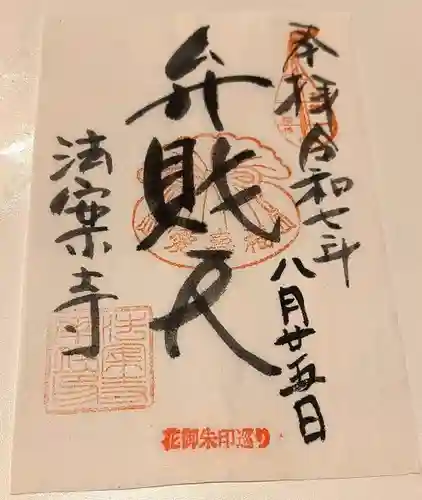 奉拝
令和七年
八月廿五日
弁財天
法案寺
花御朱印巡り